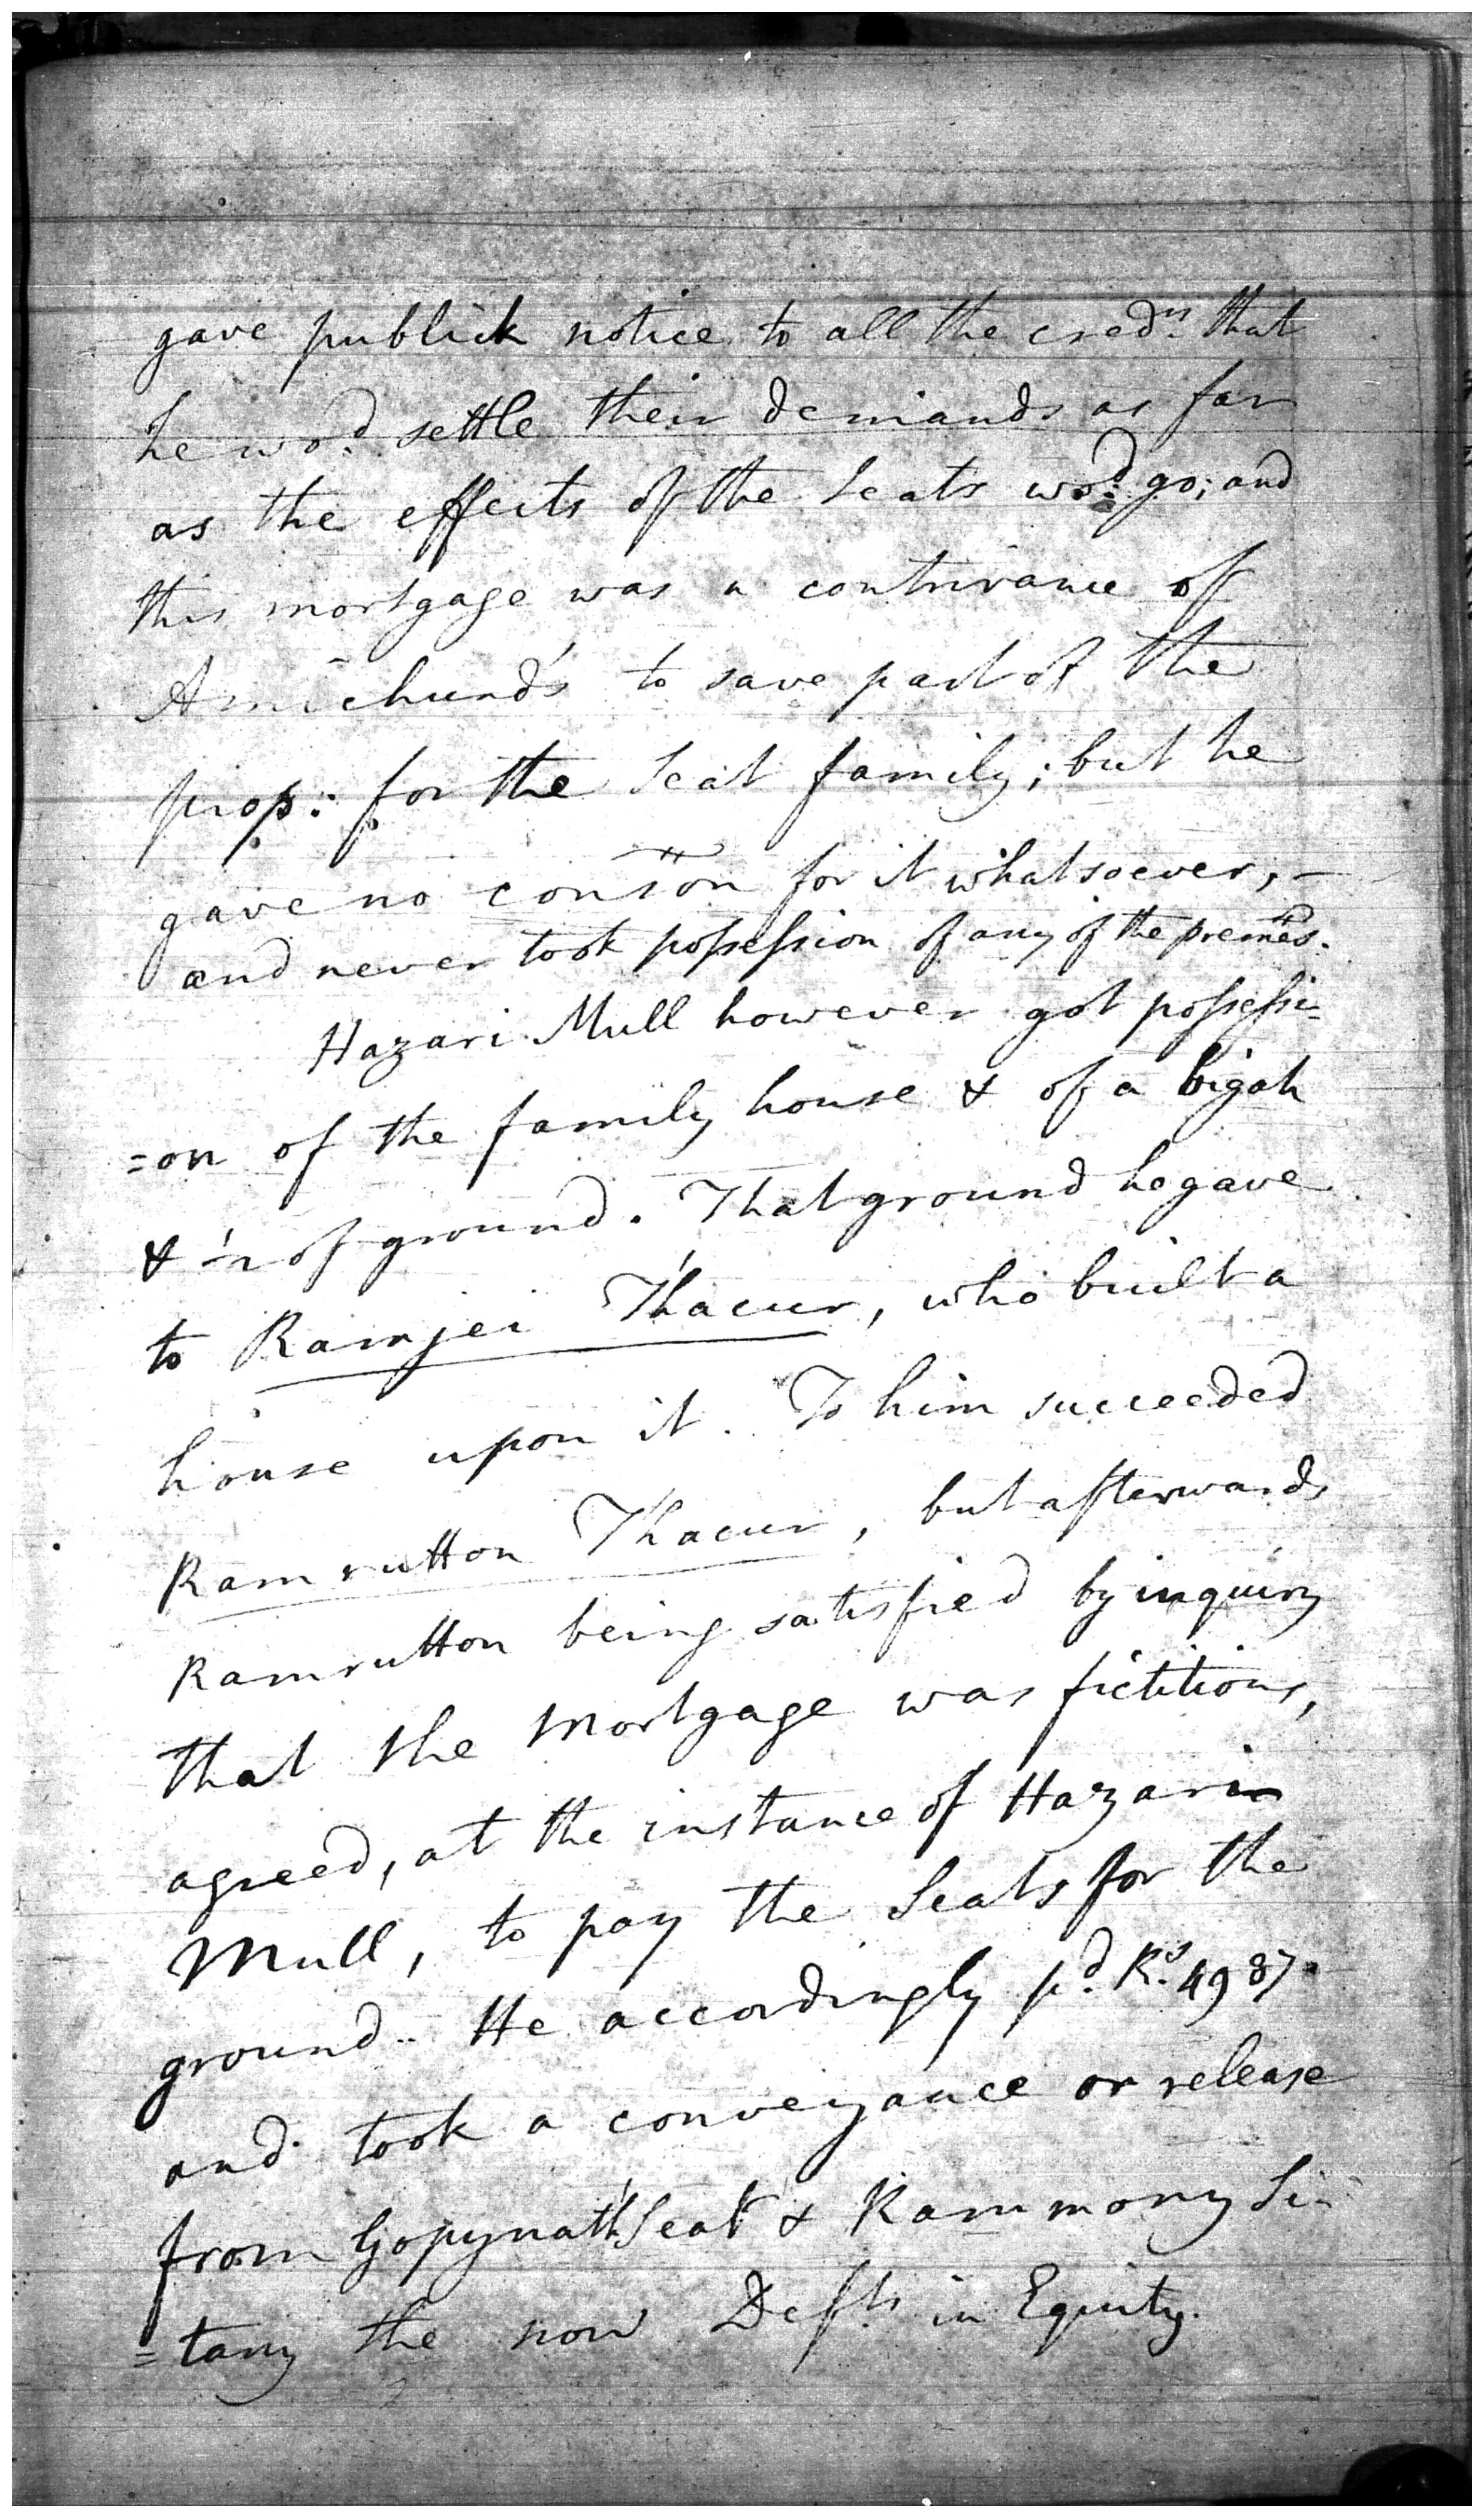 gave publick notice to all the cred.rs that
he wo.d settle their demands as far
as the effects of the Seats wo.d go; and
this mortgage was a contrivance of
Amichund's to save part of the
prop: for the Seat family; but he
gave no consion for it whatsoever, -
and never took possession of any of the premes.
Hazari Mull however got possessi=
=on of the family house & of a bigah
& ½ of ground. That ground he gave
to Ramjei Thacur, who built a
house upon it. To him succeeded
Ramrutton Thacur, but afterwards
Ramrutton being satisfied by inquiry
that the Mortgage was fictitious,
agreed, at the instance of Hazari
Mull, to pay the Seats for the
ground.. He accordingly p.d R.s 4987.
and took a conveyance or release
from Gopynath Seat & Rammony Si=
=tany the now Defts in Equity.